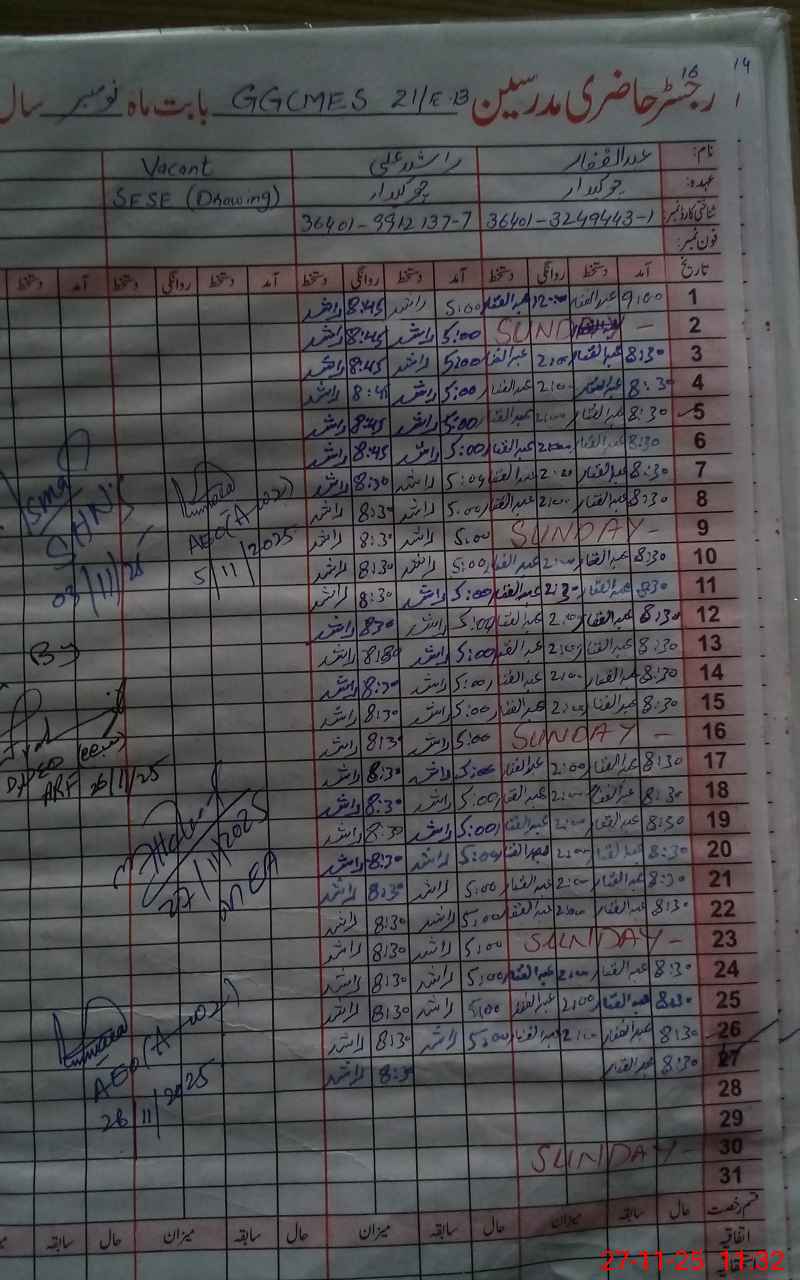 14
16
رجسٹر حاضری مدرسین GGCMES 21/E.B بابت ماہ نومبر سال
نام: عبدالغفار راشد علی Vacant
عہدہ: چوکیدار چوکیدار SESE (Drawing)
شناختی کارڈ نمبر: 36401-3249443-1 36401-9912137-7
فون نمبر:
تاریخ آمد دستخط روانگی دستخط آمد دستخط روانگی دستخط آمد دستخط روانگی دستخط آمد دستخط
1 9:00 عبدالغفار 12:00 عبدالغفار 5:00 راشد 8:45 راشد
2 SUNDAY - 5:00 راشد 8:45 راشد
3 8:30 عبدالغفار 2:00 عبدالغفار 5:00 راشد 8:45 راشد
4 8:30 عبدالغفار 2:00 عبدالغفار 5:00 راشد 8:45 راشد
5 8:30 عبدالغفار 2:00 عبدالغفار 5:00 راشد 8:45 راشد
6 8:30 عبدالغفار 2:00 عبدالغفار 5:00 راشد 8:45 راشد
7 8:30 عبدالغفار 2:00 عبدالغفار 5:00 راشد 8:30 راشد
8 8:30 عبدالغفار 2:00 عبدالغفار 5:00 راشد 8:30 راشد
9 SUNDAY - 5:00 راشد 8:30 راشد
10 8:30 عبدالغفار 2:00 عبدالغفار 5:00 راشد 8:30 راشد
11 8:30 عبدالغفار 2:30 عبدالغفار 5:00 راشد 8:30 راشد
12 8:30 عبدالغفار 2:00 عبدالغفار 5:00 راشد 8:30 راشد
13 8:30 عبدالغفار 2:00 عبدالغفار 5:00 راشد 8:30 راشد
14 8:30 عبدالغفار 2:00 عبدالغفار 5:00 راشد 8:30 راشد
15 8:30 عبدالغفار 2:00 عبدالغفار 5:00 راشد 8:30 راشد
16 SUNDAY - 5:00 راشد 8:30 راشد
17 8:30 عبدالغفار 2:00 عبدالغفار 5:00 راشد 8:30 راشد
18 8:30 عبدالغفار 2:00 عبدالغفار 5:00 راشد 8:30 راشد
19 8:30 عبدالغفار 2:00 عبدالغفار 5:00 راشد 8:30 راشد
20 8:30 عبدالغفار 2:00 عبدالغفار 5:00 راشد 8:30 راشد
21 8:30 عبدالغفار 2:00 عبدالغفار 5:00 راشد 8:30 راشد
22 8:30 عبدالغفار 2:00 عبدالغفار 5:00 راشد 8:30 راشد
23 SUNDAY - 5:00 راشد 8:30 راشد
24 8:30 عبدالغفار 2:00 عبدالغفار 5:00 راشد 8:30 راشد
25 8:30 عبدالغفار 2:00 عبدالغفار 5:00 راشد 8:30 راشد
26 8:30 عبدالغفار 2:00 عبدالغفار 5:00 راشد 8:30 راشد
27 8:30 عبدالغفار 8:30 راشد
28
29
30 SUNDAY -
31
03/11/25
AEO (A
5/11/2025
By
ARF 26/11/25
27/11/2025
MEA
AEO (A
26/11/2025
قسم رخصت حال سابقہ میزان حال سابقہ میزان حال سابقہ میزان حال سابقہ
اتفاقیہ
27-11-25 11:32